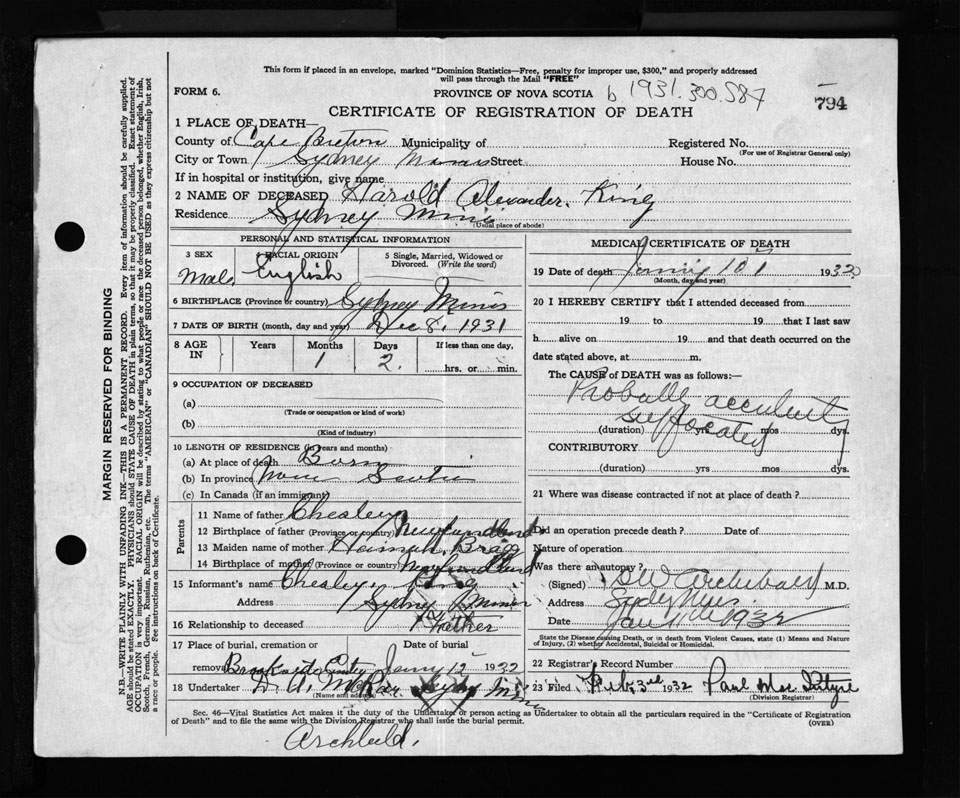 This form if placed in an envelope, marked "Dominion Statistics—Free, penalty for improper use, $300," and properly addressed
will pass through the Mail "FREE"
FORM 6. PROVINCE OF NOVA SCOTIA b 1931.300.587 794
CERTIFICATE OF REGISTRATION OF DEATH
1 PLACE OF DEATH—
County of Cape Breton Municipality of Registered No.
(For use of Registrar General only)
City or Town Sydney Mines Street House No.
If in hospital or institution, give name
2 NAME OF DECEASED Harold Alexander. King
Residence Sydney Mines
(Usual place of abode)
PERSONAL AND STATISTICAL INFORMATION
3 SEX 4 RACIAL ORIGIN 5 Single, Married, Widowed or
Divorced. (Write the word)
Male English
6 BIRTHPLACE (Province or country) Sydney Mines
7 DATE OF BIRTH (month, day and year) Dec 8, 1931
8 AGE IN Years Months Days If less than one day,
1 2. hrs. or min.
9 OCCUPATION OF DECEASED
(a)
(Trade or occupation or kind of work)
(b)
(Kind of industry)
10 LENGTH OF RESIDENCE (in years and months)
(a) At place of death Born
(b) In province Nova Scotia
(c) In Canada (if an immigrant)
Parents
11 Name of father Chesley
12 Birthplace of father (Province or country) Newfoundland
13 Maiden name of mother Hannah Bragg
14 Birthplace of mother (Province or country) Newfoundland
15 Informant's name Chesley King
Address Sydney Mines
16 Relationship to deceased Father
17 Place of burial, cremation or
removal 12 1932
18 Undertaker Sydney Mines
(Name and address)
MEDICAL CERTIFICATE OF DEATH
19 Date of death 10 1932
(Month, day and year)
20 I HEREBY CERTIFY that I attended deceased from
19 to 19 that I last saw
h alive on 19 and that death occurred on the
date stated above, at m.
The CAUSE of DEATH was as follows:—
suffocated
(duration) yrs mos dys.
CONTRIBUTORY
(duration) yrs mos dys.
21 Where was disease contracted if not at place of death?
Did an operation precede death? Date of
Nature of operation
Was there an autopsy?
(Signed) Archibald M.D.
Address
Date Jan 1932
State the Disease causing Death, or in death from Violent Causes, state (1) Means and Nature
of Injury, (2) whether Accidental, Suicidal or Homicidal.
22 Registrar's Record Number
23 Filed Feb 3rd 1932 Paul
(Division Registrar)
Sec. 46—Vital Statistics Act makes it the duty of the Undertaker or person acting as Undertaker to obtain all the particulars required in the "Certificate of Registration
of Death" and to file the same with the Division Registrar who shall issue the burial permit.
(OVER)
Archbald.
MARGIN RESERVED FOR BINDING
N.B.—WRITE PLAINLY WITH UNFADING INK—THIS IS A PERMANENT RECORD. Every item of information should be carefully supplied.
AGE should be stated EXACTLY. PHYSICIANS should STATE CAUSE OF DEATH in plain terms, so that it may be properly classified. Exact statement of
OCCUPATION is very important. RACIAL ORIGIN will be described by stating to what people or race the deceased person belonged, whether English, Irish,
Scotch, French, German, Russian, Ruthenian, etc. The terms "AMERICAN" or "CANADIAN" SHOULD NOT BE USED as they express citizenship but not
a race or people. See instructions on back of Certificate.